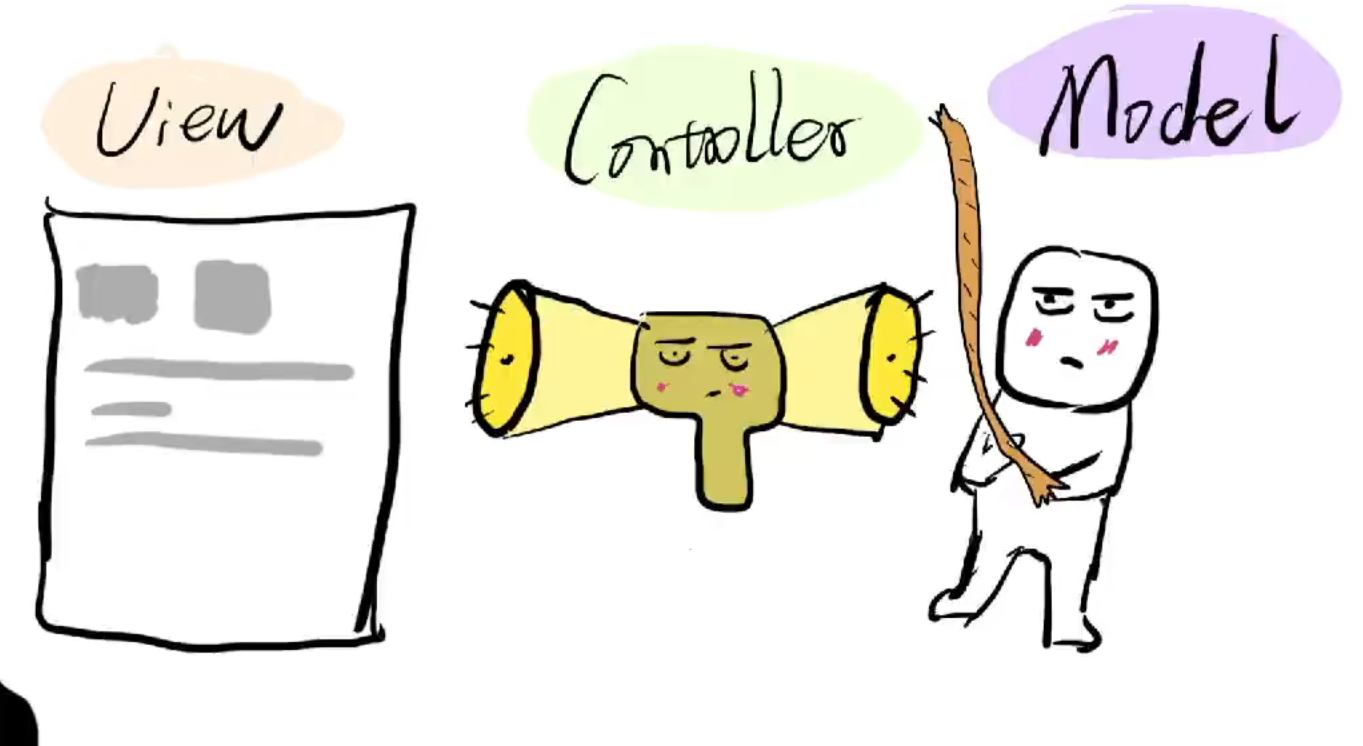 View
Controller
Model